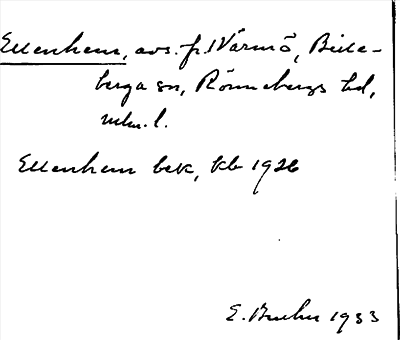 Ellenhem, avs. fr. 1 Värmö, Bille-
berga sn, Rönnebergs hd,
mlm. l.
Ellenhem bek, kb 1926
E. Bruhn 1933